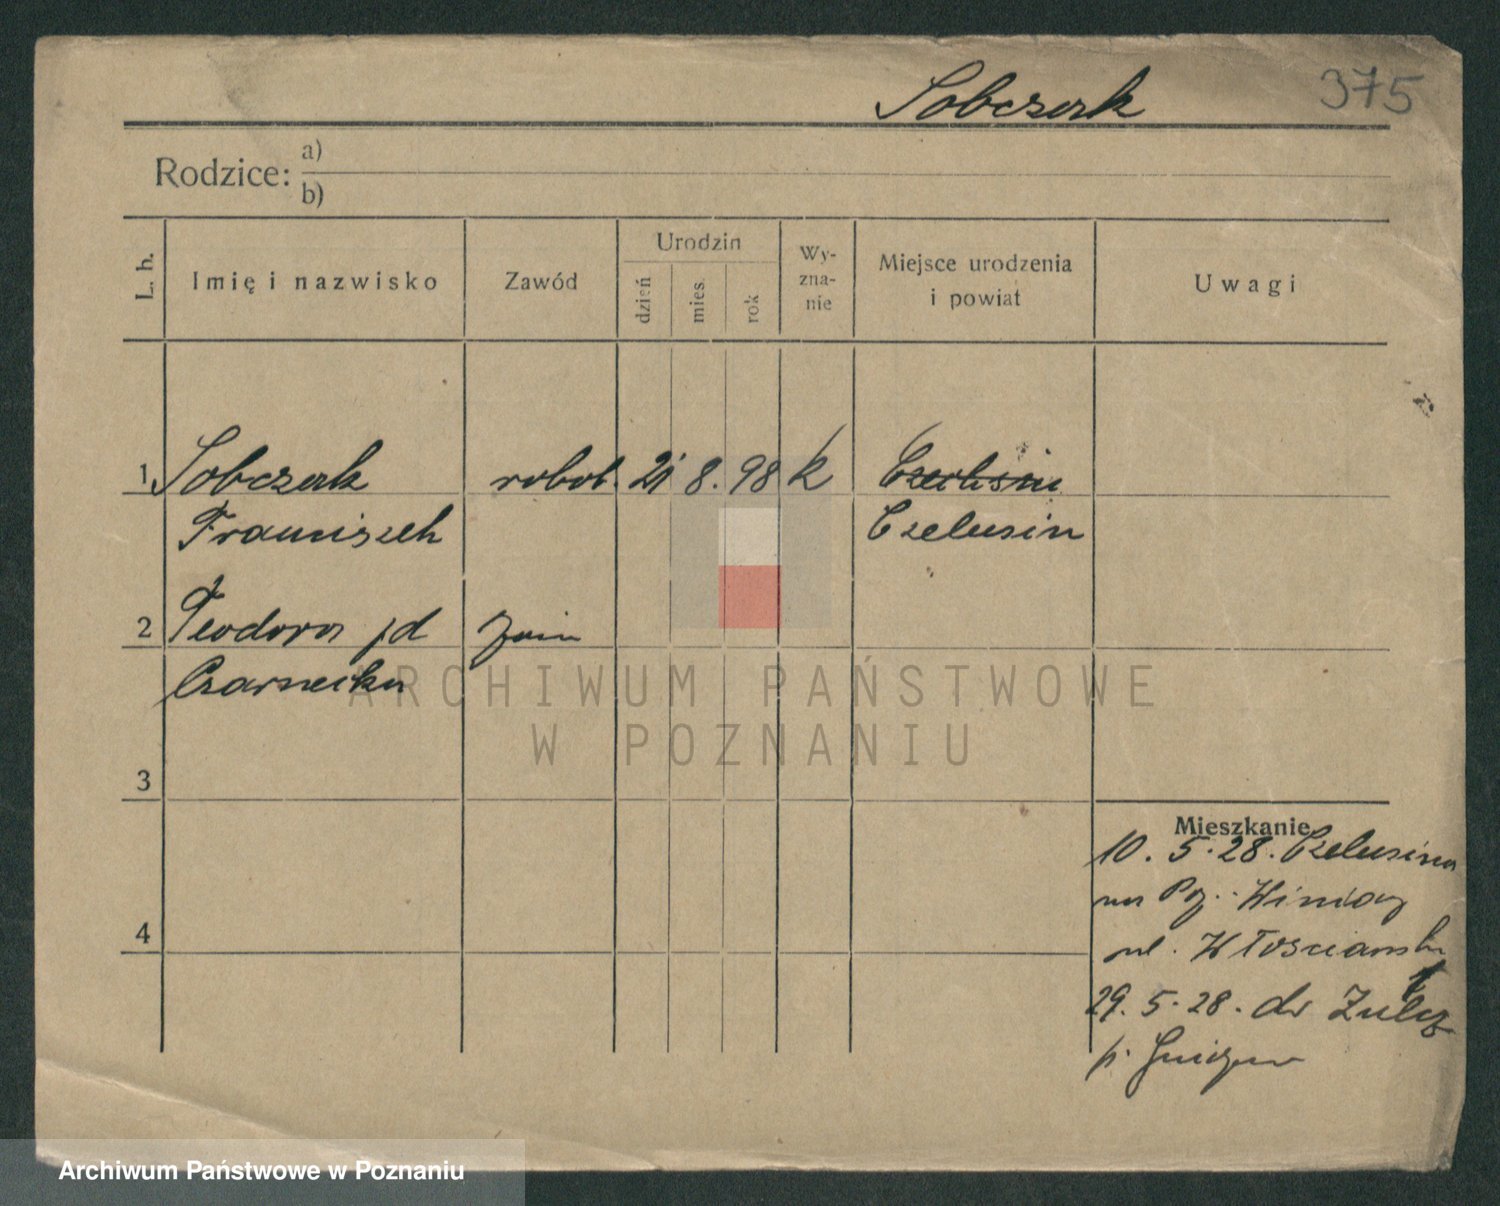 Sobczak 375
Rodzice: a)
b)
L. h. Imię i nazwisko Zawód Urodzin dzień mies. rok Wy-zna-nie Miejsce urodzenia i powiat Uwagi
1 Sobczak robot. 21 8. 98 k
Franciszek Czelusin
2 Teodora
Czarnecka
ARCHIWUM PAŃSTWOWE
W POZNANIU
3
Mieszkanie
10. 5. 28. Czelusina
na Poz. Winiary
4
ul. Włościańska
29. 5. 28. do
p.
Archiwum Państwowe w Poznaniu